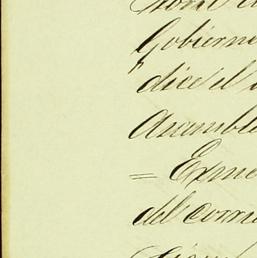 Gobierno
dice el
Asamble
= Exme
del corri